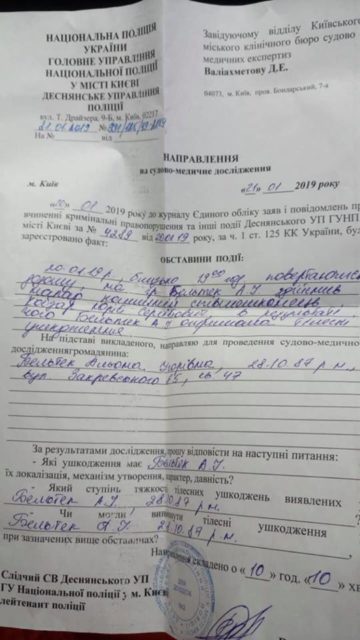 НАЦІОНАЛЬНА ПОЛІЦІЯ
УКРАЇНИ
ГОЛОВНЕ УПРАВЛІННЯ
НАЦІОНАЛЬНОЇ ПОЛІЦІЇ
У МІСТІ КИЄВІ
ДЕСНЯНСЬКЕ УПРАВЛІННЯ
ПОЛІЦІЇ
вул. Т. Драйзера, 9-Б, м. Київ, 02217
21.01.2019 №
На № від
Завідуючому відділу Київського
міського клінічного бюро судово
медичних експертиз
Валіахметову Д.Е.
04073, м. Київ, пров. Бондарський, 7-а
НАПРАВЛЕННЯ
на судово-медичне дослідження
м. Київ «21» 01 2019 року
«20» 01 2019 року до журналу Єдиного обліку заяв і повідомлень пр
вчиненні кримінальні правопорушення та інші події Деснянського УП ГУНП
місті Києві за № 4289 від 20.01.19 року, за ч. 1 ст. 125 КК України, бул
зареєстровано факт:
ОБСТАВИНИ ПОДІЇ:
20.01.19 р., близько 19 год, повертаючись
додому, на гр. А.Ю здійснив
напад колишній
в результаті
чого А.Ю отримала тілесні
ушкодження
На підставі викладеного, направляю для проведення судово-медичного
дослідження громадянина:
Альона Юріївна, 28.10.87 р.н.,
вул. Закревського 85, кв. 47
За результатами дослідження, прошу відповісти на наступні питання:
- Які ушкодження має А.Ю.
їх локалізація, механізм утворення, характер, давність?
- Який ступінь тяжкості тілесних ушкоджень виявлених
А.Ю 28.10.87 р.н. ?
- Чи могли виникнути тілесні ушкодження
А.Ю 28.10.87 р.н.
при зазначених вище обставинах?
Направлення складено о «10» год. «10» хв
Слідчий СВ Деснянського УП
ГУ Національної поліції у м. Києві
лейтенант поліції